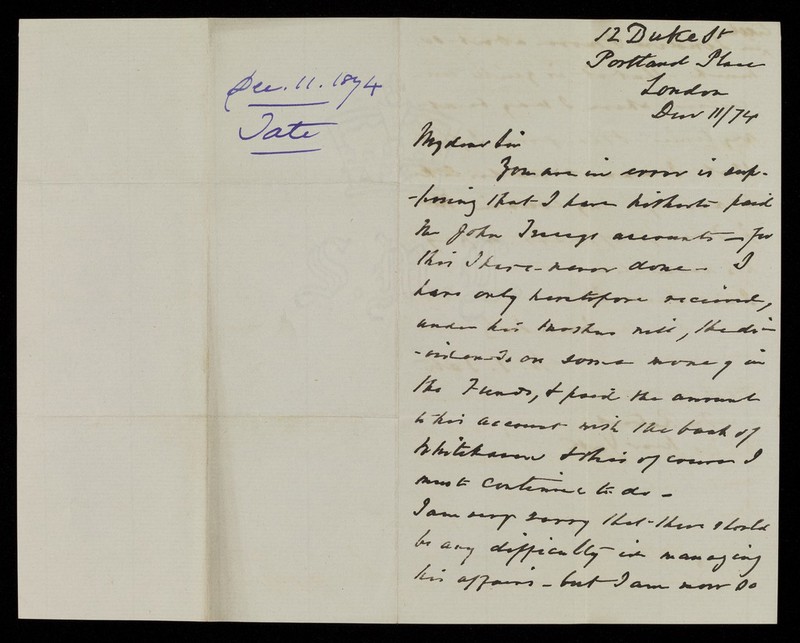 Dec. 11. 1874
Tate
12 Duke St
Portland Place
London
Dec 11/74
My dear Sir
You are in error is sup-
-posing that I have hitherto paid
Mr John accounts - for
this I have never done - I
have only heretofore received,
under his Mothers will, the di-
-vidends on some money in
the Funds, & paid the amount
to his account with the bank of
Whitehaven & this of course I
must continue to do -
I am very sorry that there should
be any difficulty in managing
his affairs - but I am now so